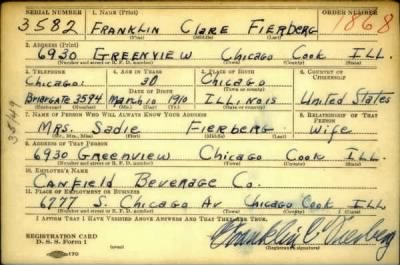 SERIAL NUMBER 1. NAME (Print) ORDER NUMBER
3582 FRANKLIN CLARE FIERBERG 1868
(First) (Middle) (Last)
2. ADDRESS (Print)
6930 GREENVIEW Chicago Cook ILL.
(Number and street or R. F. D. number) (Town) (County) (State)
3. TELEPHONE 4. AGE IN YEARS 5. PLACE OF BIRTH 6. COUNTRY OF CITIZENSHIP
Chicago. 30 Chicago
DATE OF BIRTH (Town or county)
BRIARGATE 3594 March 10 1910 ILLINOIS United States
(Exchange) (No.) (Mo.) (Day) (Yr.) (State or country)
7. NAME OF PERSON WHO WILL ALWAYS KNOW YOUR ADDRESS 8. RELATIONSHIP OF THAT PERSON
MRS. Sadie FIERBERG Wife
(Mr., Mrs., Miss) (First) (Middle) (Last)
9. ADDRESS OF THAT PERSON
6930 Greenview Chicago Cook ILL.
(Number and street or R. F. D. number) (Town) (County) (State)
10. EMPLOYER'S NAME
CANFIELD BEVERAGE Co.
11. PLACE OF EMPLOYMENT OR BUSINESS
6777 S. Chicago Av Chicago Cook ILL
(Number and street or R. F. D. number) (Town) (County) (State)
I AFFIRM THAT I HAVE VERIFIED ABOVE ANSWERS AND THAT THEY ARE TRUE.
REGISTRATION CARD
D. S. S. Form 1
Franklin C Fierberg
(Registrant's signature)
3549